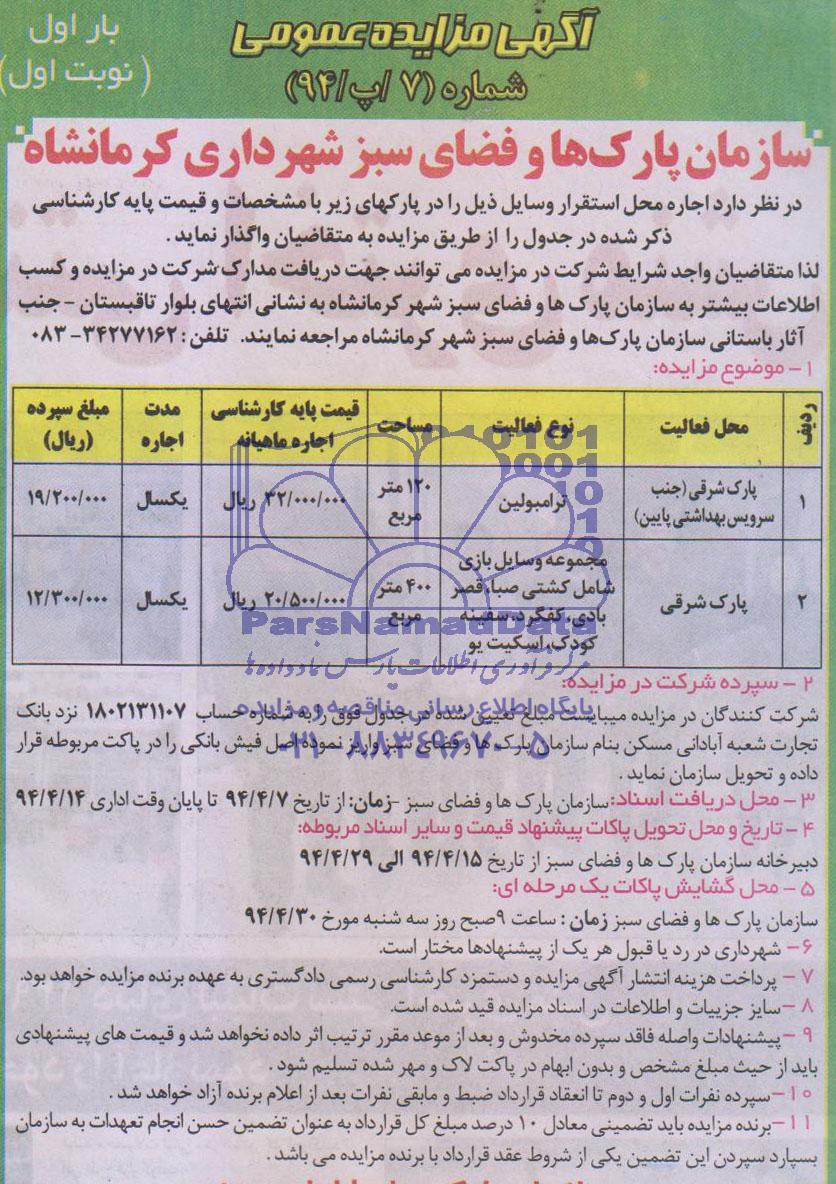 آگهی مزایده عمومی
شماره (۷ /پ/۹۴)
بار اول
(نوبت اول)
سازمان پارک‌ها و فضای سبز شهرداری کرمانشاه
در نظر دارد اجاره محل استقرار وسایل ذیل را در پارکهای زیر با مشخصات و قیمت پایه کارشناسی
ذکر شده در جدول را از طریق مزایده به متقاضیان واگذار نماید .
لذا متقاضیان واجد شرایط شرکت در مزایده می توانند جهت دریافت مدارک شرکت در مزایده و کسب
اطلاعات بیشتر به سازمان پارک ها و فضای سبز شهر کرمانشاه به نشانی انتهای بلوار تاقبستان - جنب
آثار باستانی سازمان پارک‌ها و فضای سبز شهر کرمانشاه مراجعه نمایند. تلفن : ۳۴۲۷۷۱۶۲- ۰۸۳
۱- موضوع مزایده:
ردیف محل فعالیت نوع فعالیت مساحت قیمت پایه کارشناسی اجاره ماهیانه مدت اجاره مبلغ سپرده (ریال)
۱ پارک شرقی (جنب سرویس بهداشتی پایین) ترامبولین ۱۲۰ متر مربع ۳۲/۰۰۰/۰۰۰ ریال یکسال ۱۹/۲۰۰/۰۰۰
۲ پارک شرقی مجموعه وسایل بازی شامل کشتی صبا، قصر بادی، کفگرد، سفینه کودک، اسکیت یو ۴۰۰ متر مربع ۲۰/۵۰۰/۰۰۰ ریال یکسال ۱۲/۳۰۰/۰۰۰
ParsNamadData
مرکز فرآوری اطلاعات پارس نماد داده ها
پایگاه اطلاع رسانی مناقصه و مزایده
۰۲۱-۸۸۳۴۹۶۷۰-۵
۲ - سپرده شرکت در مزایده:
شرکت کنندگان در مزایده میبایست مبلغ تعیین شده در جدول فوق را به شماره حساب ۱۸۰۲۱۳۱۱۰۷ نزد بانک
تجارت شعبه آبادانی مسکن بنام سازمان پارک ها و فضای سبز واریز نموده اصل فیش بانکی را در پاکت مربوطه قرار
داده و تحویل سازمان نماید .
۳ - محل دریافت اسناد: سازمان پارک ها و فضای سبز -زمان: از تاریخ ۹۴/۴/۷ تا پایان وقت اداری ۹۴/۴/۱۴
۴ - تاریخ و محل تحویل پاکات پیشنهاد قیمت و سایر اسناد مربوطه:
دبیرخانه سازمان پارک ها و فضای سبز از تاریخ ۹۴/۴/۱۵ الی ۹۴/۴/۲۹
۵ - محل گشایش پاکات یک مرحله ای:
سازمان پارک ها و فضای سبز زمان : ساعت ۹صبح روز سه شنبه مورخ ۹۴/۴/۳۰
۶- شهرداری در رد یا قبول هر یک از پیشنهادها مختار است.
۷ - پرداخت هزینه انتشار آگهی مزایده و دستمزد کارشناسی رسمی دادگستری به عهده برنده مزایده خواهد بود.
۸ -سایز جزییات و اطلاعات در اسناد مزایده قید شده است.
۹ -پیشنهادات واصله فاقد سپرده مخدوش و بعد از موعد مقرر ترتیب اثر داده نخواهد شد و قیمت های پیشنهادی
باید از حیث مبلغ مشخص و بدون ابهام در پاکت لاک و مهر شده تسلیم شود .
۱۰-سپرده نفرات اول و دوم تا انعقاد قرارداد ضبط و مابقی نفرات بعد از اعلام برنده آزاد خواهد شد .
۱۱-برنده مزایده باید تضمینی معادل ۱۰ درصد مبلغ کل قرارداد به عنوان تضمین حسن انجام تعهدات به سازمان
بسپارد سپردن این تضمین یکی از شروط عقد قرارداد با برنده مزایده می باشد .